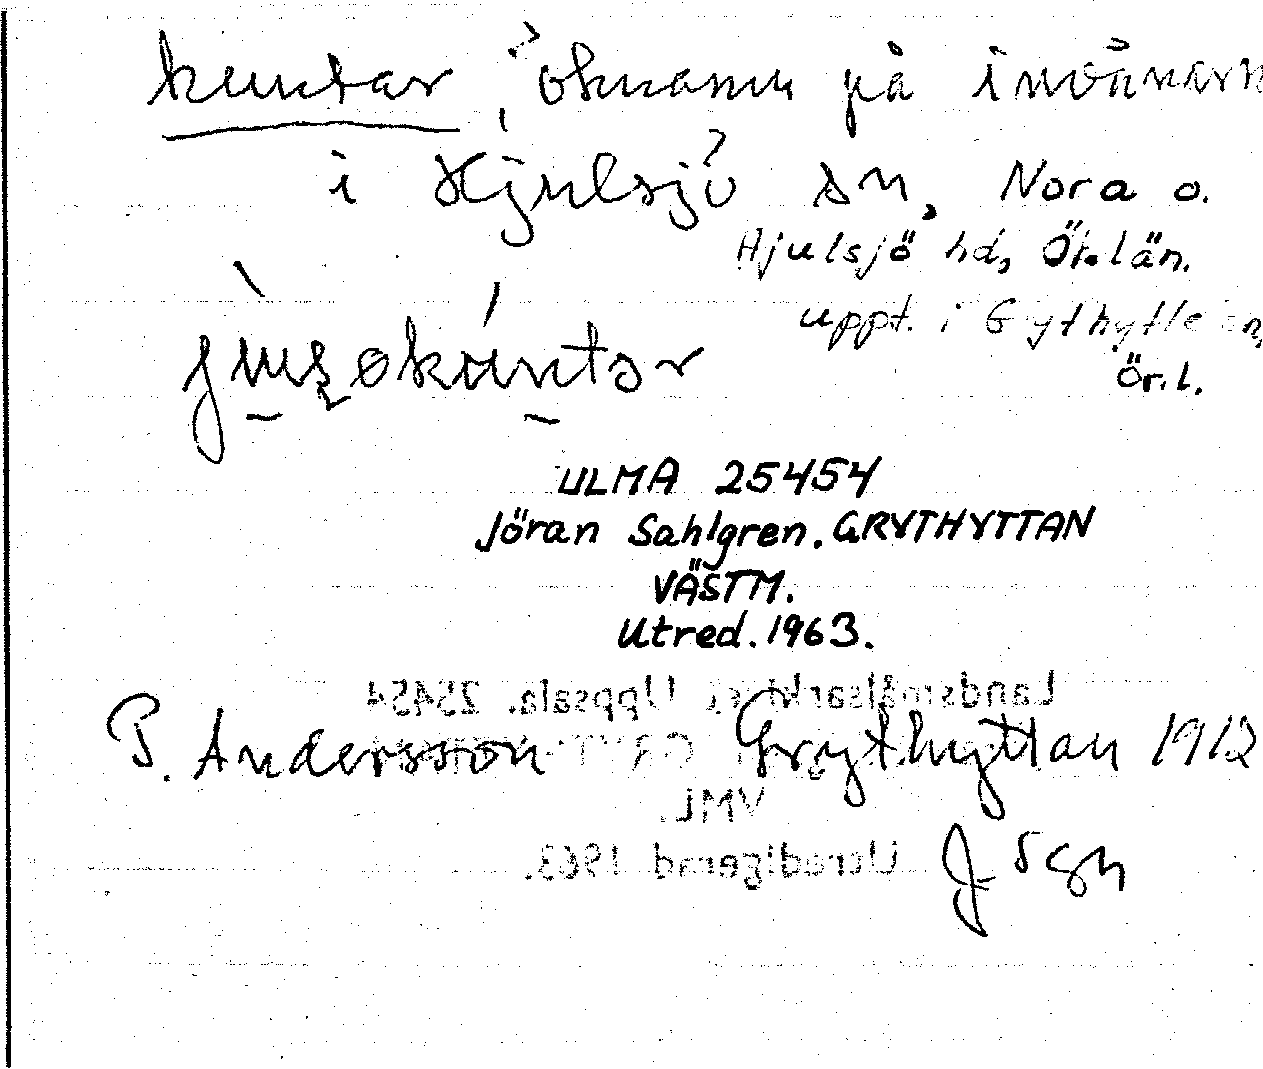 kuntar, öknamn på invånarn
i Hjulsjö sn, Nora o.
Hjulsjö hd, Ök.län.
uppt. i Gythytte sn,
Ör.l.
ULMA 25454
Jöran Sahlgren. GRYTHYTTAN
VÄSTM.
Utred. 1963.
Landsmålsarkivet Uppsala. 25454
P. Andersson Grythyttan 1912
VML.
Utredigerad 1963.
J Sgn